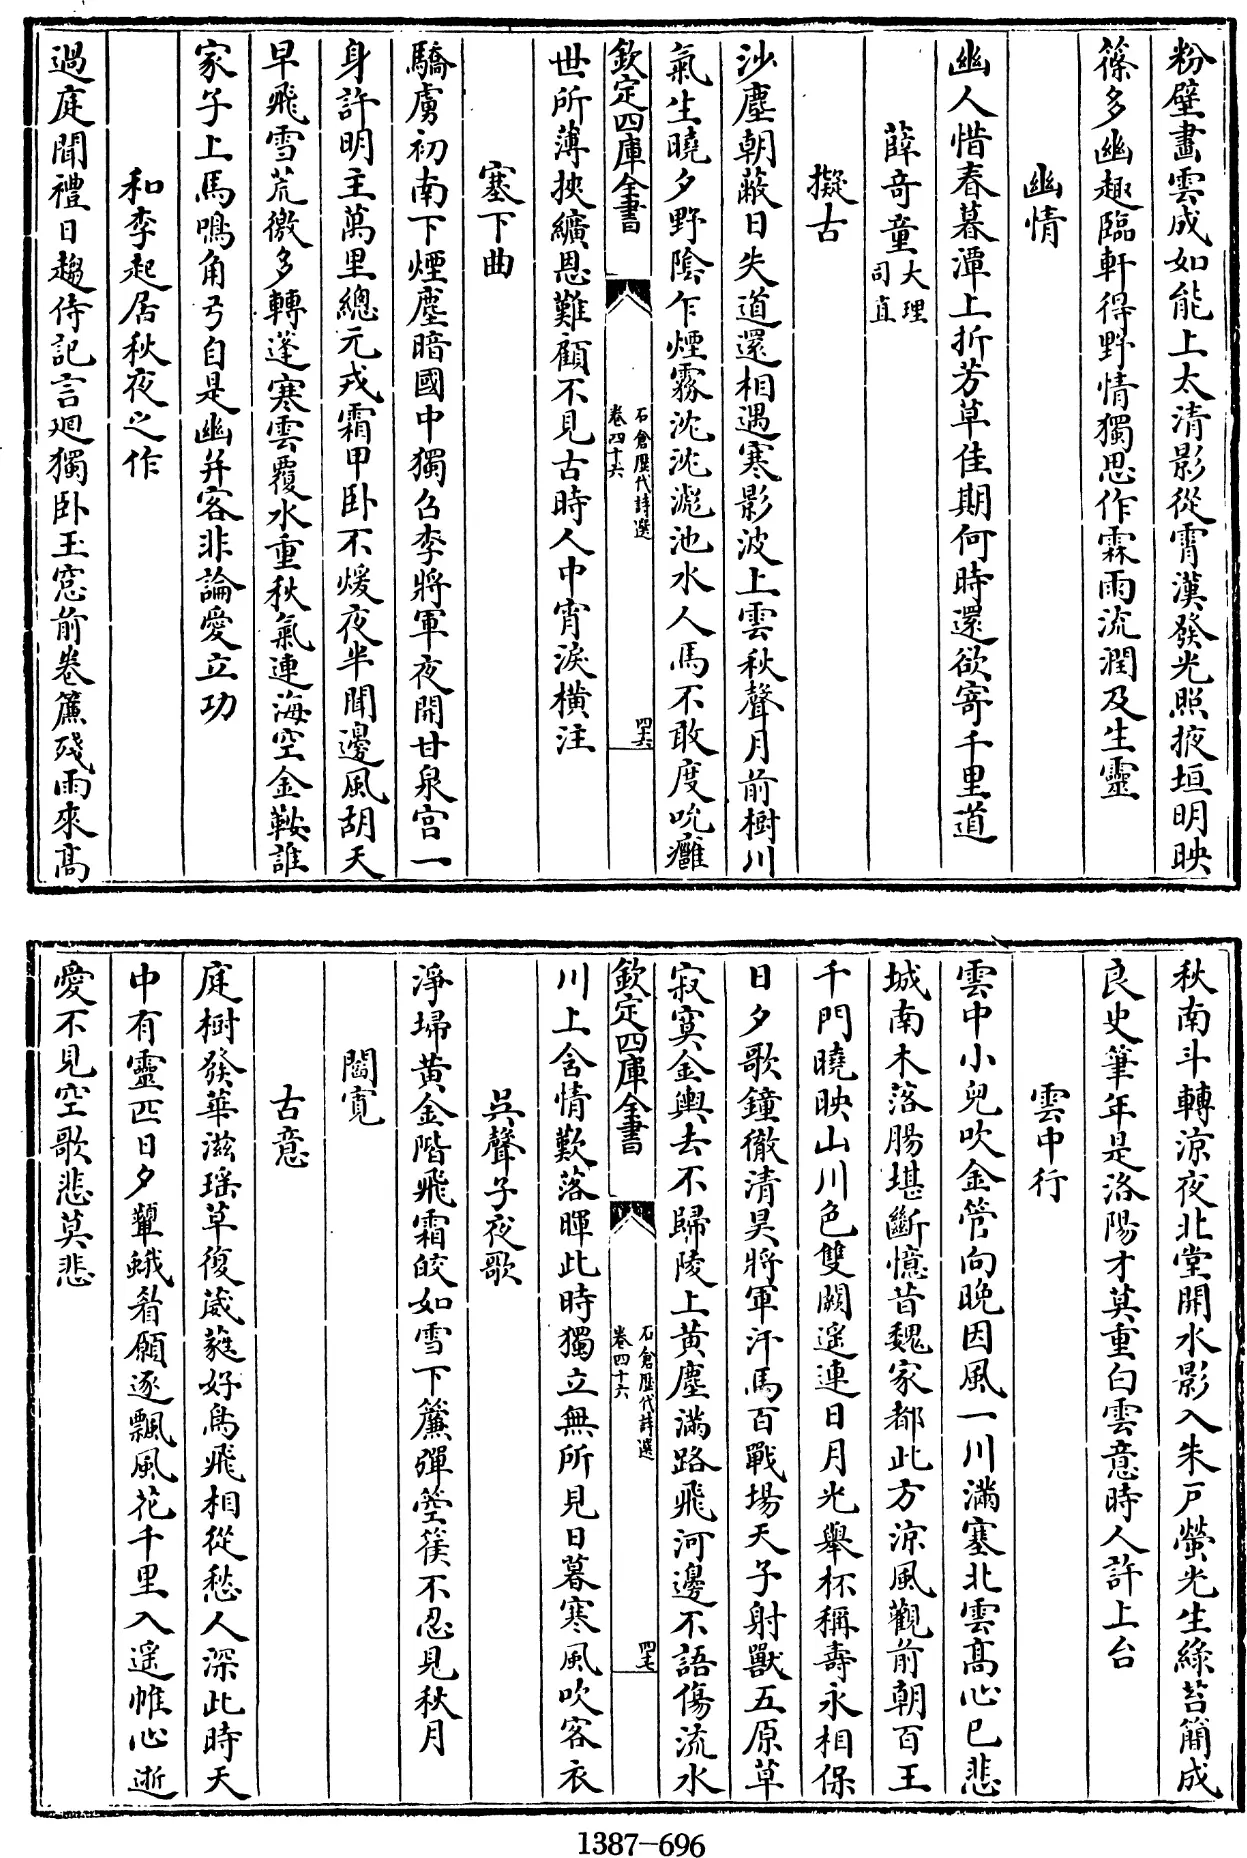 粉壁畫雲成如能上太清影從霄漢發光照掖垣明映
篠多幽趣臨軒得野情獨思作霖雨流潤及生靈
幽情
幽人惜春暮潭上折芳草佳期何時還欲寄千里道
薛奇童大理司直
擬古
沙塵朝蔽日失道還相遇寒影波上雲秋聲月前樹川
氣生曉夕野陰乍煙霧沈沈滮池水人馬不敢度吮癰
欽定四庫全書
石倉歷代詩選
卷四十六
四六
世所薄挾纊恩難顧不見古時人中宵淚橫注
塞下曲
驕虜初南下煙塵暗國中獨召李將軍夜開甘泉宫一
身許明主萬里總元戎霜甲卧不煖夜半聞邊風胡天
早飛雪荒徼多轉蓬寒雲覆水重秋氣連海空金鞍誰
家子上馬鳴角弓自是幽并客非論愛立功
和李起居秋夜之作
過庭聞禮日趨侍記言廻獨卧玉窓前卷簾殘雨來髙
秋南斗轉涼夜北堂開水影入朱戸螢光生綠苔簡成
良史筆年是洛陽才莫重白雲意時人許上台
雲中行
雲中小兒吹金管向晚因風一川滿塞北雲髙心已悲
城南木落腸堪斷憶昔魏家都此方涼風觀前朝百王
千門曉映山川色雙闕遥連日月光舉杯稱壽永相保
日夕歌鐘徹清昊將軍汗馬百戰場天子射獸五原草
寂寞金輿去不歸陵上黄塵滿路飛河邊不語傷流水
欽定四庫全書
石倉歷代詩選
卷四十六
四七
川上含情歎落暉此時獨立無所見日暮寒風吹客衣
吳聲子夜歌
淨埽黄金階飛霜皎如雪下簾彈箜篌不忍見秋月
閻寛
古意
庭樹發華滋瑶草復葳蕤好鳥飛相從愁人深此時天
中有靈匹日夕顰蛾眉願逐飄風花千里入遥帷心逝
愛不見空歌悲莫悲
1387-696